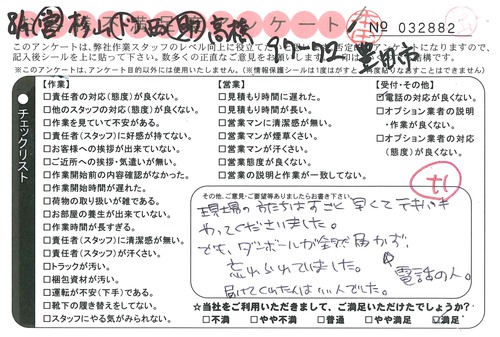 不満足 アンケート
No 032882
このアンケートは、弊社作業スタッフのレベル向上に役立て
記入後シールを上に貼って下さい。
※このアンケートは、アンケート目的以外には使用いたしません。(※情報保護シールは1度はがすと再度貼りなおすことはできません)
チェックリスト
【作業】
□責任者の対応(態度)が良くない。
□他のスタッフの対応(態度)が良くない。
□作業を見ていて不安がある。
□責任者(スタッフ)に好感が持てない。
□お客様への挨拶が出来ていない。
□ご近所への挨拶・気遣いが無い。
□作業開始前の内容確認がなかった。
□作業開始時間が遅れた。
□荷物の取り扱いが雑である。
□お部屋の養生が出来ていない。
□作業時間が長すぎる。
□責任者(スタッフ)に清潔感が無い。
□責任者(スタッフ)が汗くさい。
□トラックが汚い。
□梱包資材が汚い。
□運転が不安(下手)である。
□靴下の履き替えをしてない。
□スタッフにやる気がみられない。
【営業】
□見積もり時間に遅れた。
□見積もり時間が長い。
□営業マンに清潔感が無い。
□営業マンが煙草くさい。
□営業マンが汗くさい。
□営業態度が良くない。
□営業の説明と作業が一致してない。
【受付・その他】
□電話の対応(態度)が良くない。
□オプション業者の説明
・作業が良くない。
□オプション業者の対応
(態度)が良くない。
その他、ご意見・ご要望等ありましたらお書き下さい
現場の方たちはすごく早くてテキパキ
やってくださいました。
でも、ダンボールが全部で届かず、
忘れられていました。
電話の人。
届けてくれた人はいい人でした。
☆当社をご利用いただきまして、ご満足いただけたでしょうか?
□不満 □やや不満 □普通 □やや満足 □満足